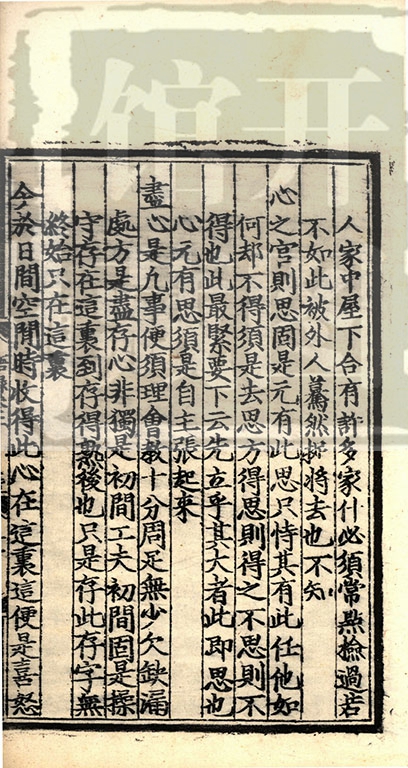 人家中屋下合有許多家什必須常㸃檢過若
不如此被外人驀然將去也不知
心之官則思固是元有此思只恃其有此任他如
何却不得須是去思方得思則得之不思則不
得也此最緊要下云先立乎其大者此即思也
心元有思須是自主張起來
盡心是九事便須理會敎十分周足無少欠缺漏
處方是盡存心非獨是初間工夫初間固是操
守存在這裏到存得熟後也只是存此存字無
終始只在這裏
今於日間空閒時收得此心在這裏這便是喜怒